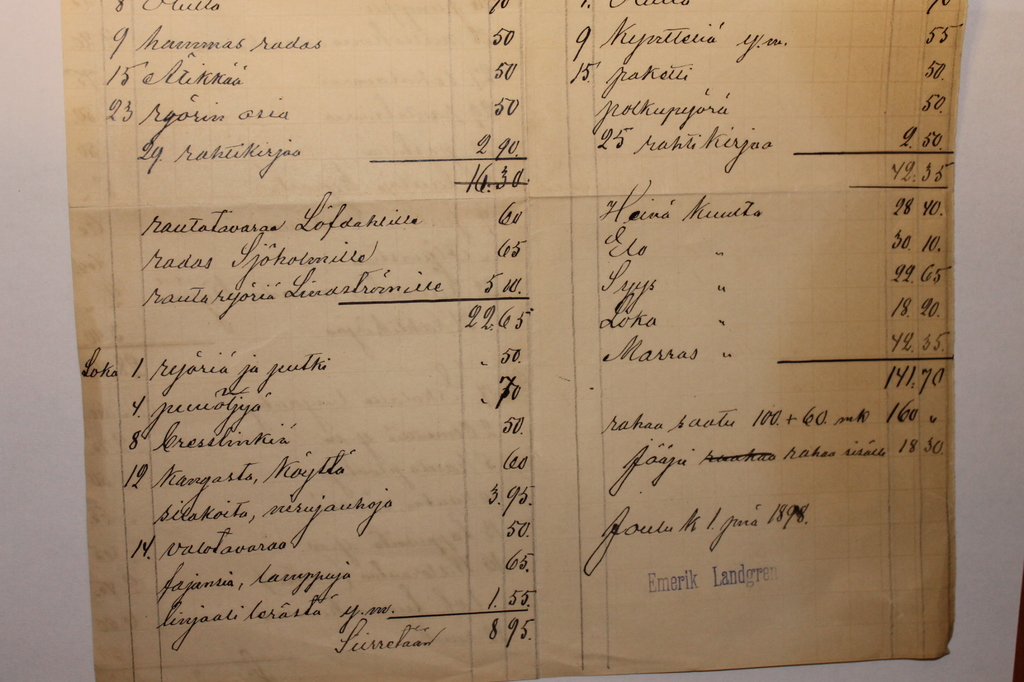 8 70
9 hammas radas 50
15 Ätikkää 50
23 ryörin osia 50
29 rahtikirjaa 2 90.
16.30.
rautatavaraa Löfdahlille 60
radas Sjöholmille 65
rautaryöriä Lindströmille 5 10.
22.65
Loka 1. ryöriä ja putki " 50.
4. " 70
8 50.
12 Kangasta, Köyttä 60
silakoita, nisujauhoja 3.95.
14. valotavaraa 50.
fajansia, lamppuja 65.
linjaali terästä y.m. 1.55.
Siirretään 8 95.
1. 70
9 Kyntteliä y.m. 55
15. paketti 50.
polkupyörä 50.
25 rahtikirjaa 2.50.
42.35
Heinä Kuulta 28 40.
Elo " 30.10.
Syys " 22.65
Loka " 18.20.
Marras " 42.35.
141.70
rahaa saatu 100. + 60. mk 160 "
Jääpi rahaa sisälle 18 30.
Joulu k 1. pnä 1898.
Emerik Landgren